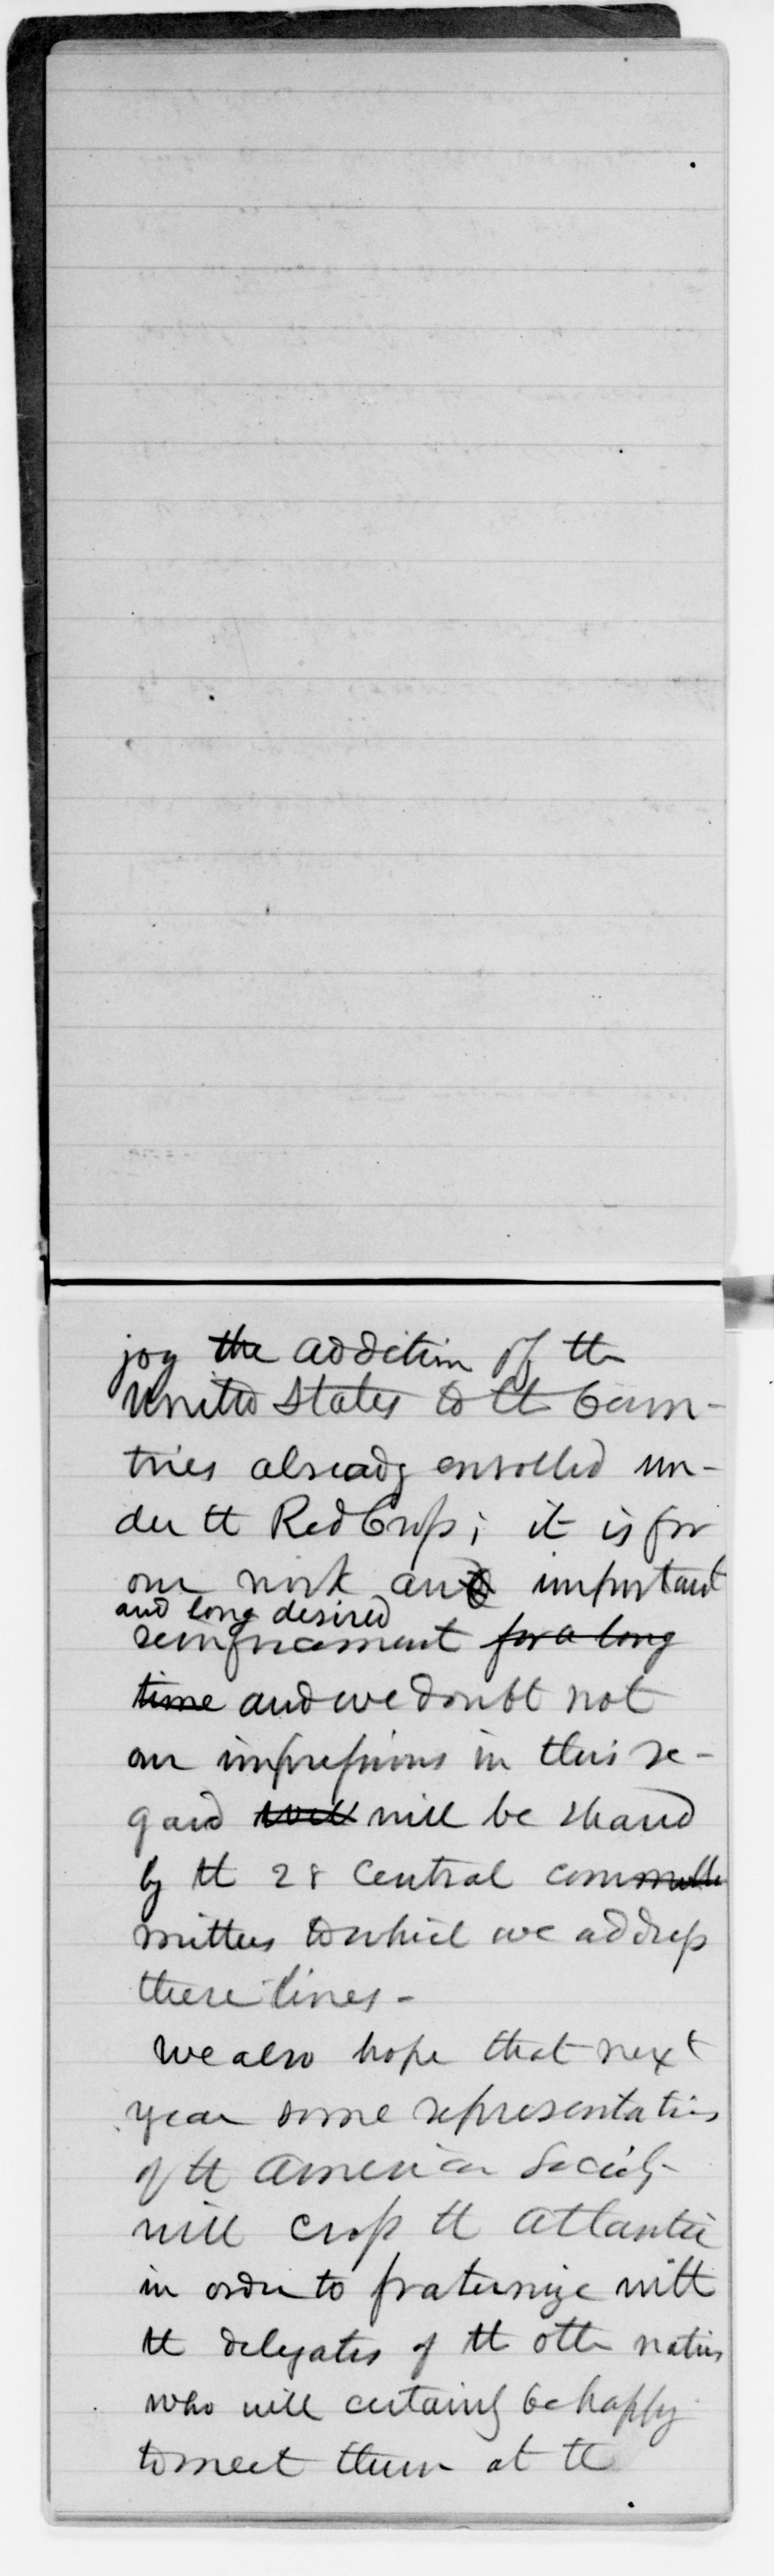 joy the addition of the
United States to the Coun-
tries already enrolled un-
der the Red Cross; it is for
our work and important
and long desired
reinforcement for a long
time and we doubt not
our impressions in this re-
gard will will be shared
by the 28 Central com
mittees to which we address
these lines -
We also hope that next
year some representatives
of the American Society
will cross the Atlantic
in order to fraternize with
the delegates of the other nations
who will certainly be happy
to meet them at the